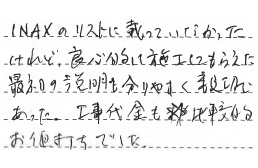 INAXのリストに載っていなかった
けれど、良心的に施工してもらえた
最初の説明も分りやすく親切で
あった。工事代金も比較的
お値打ちでした。